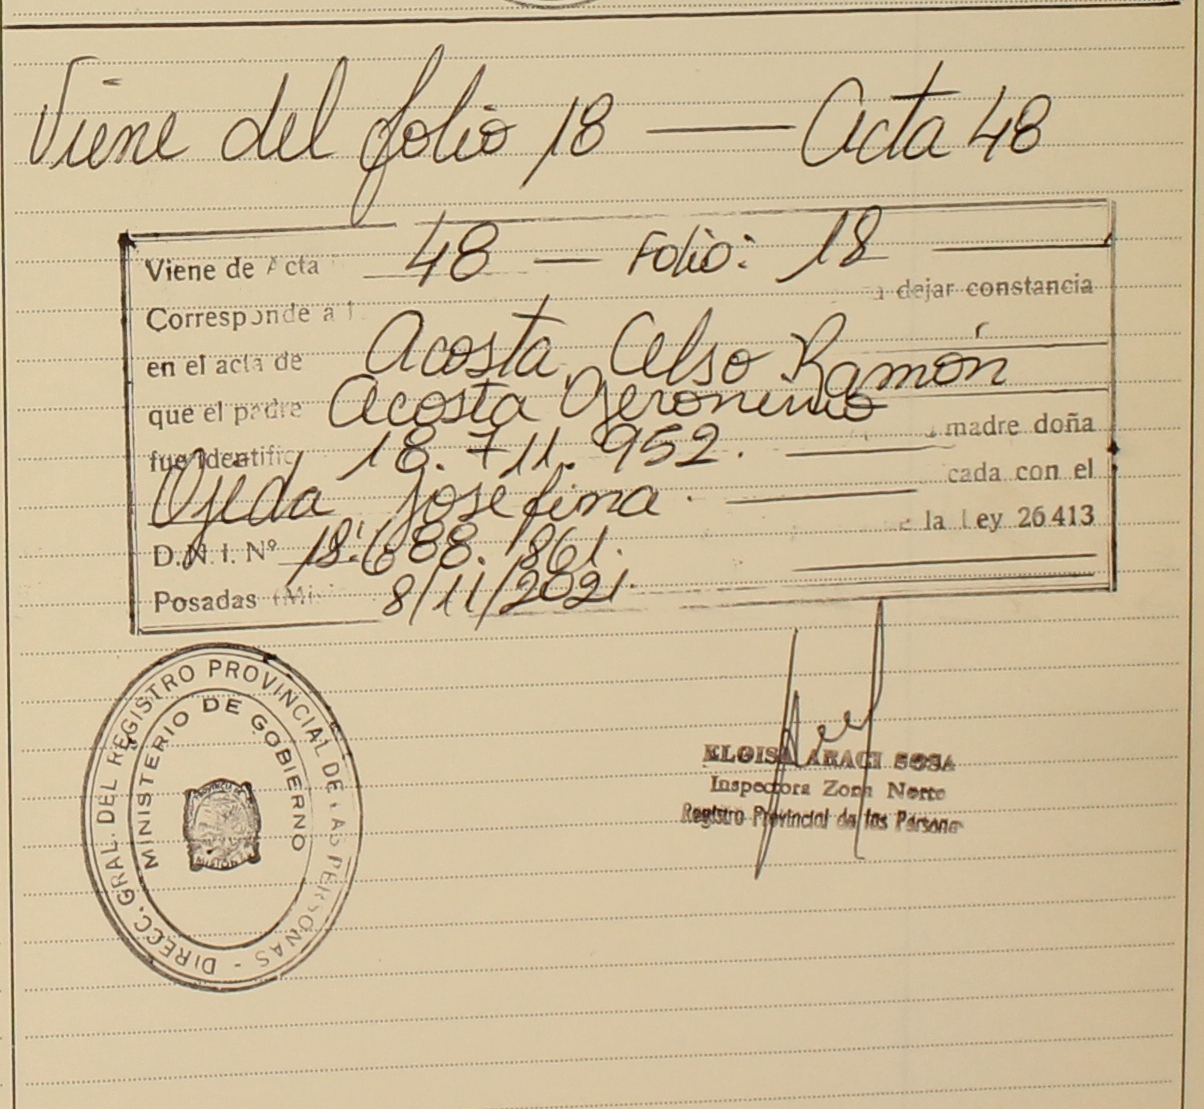 Viene del folio 18 — Acta 48
Viene de Acta 48 — Folio: 18
Corresponde a dejar constancia
en el acta de Acosta, Celso Ramón
que el padre Acosta Geronimo
madre doña
fue identific 18.711.952.
cada con el
Ojeda Josefina.
la Ley 26413
D.N.I. Nº 18.688.861.
Posadas (Mi 8/11/2021.
DIRECC. GRAL. DEL REGISTRO PROVINCIAL DE LAS PERSONAS -
MINISTERIO DE GOBIERNO
ELOISA ARACI SOSA
Inspectora Zona Norte
Registro Provincial de las Persona